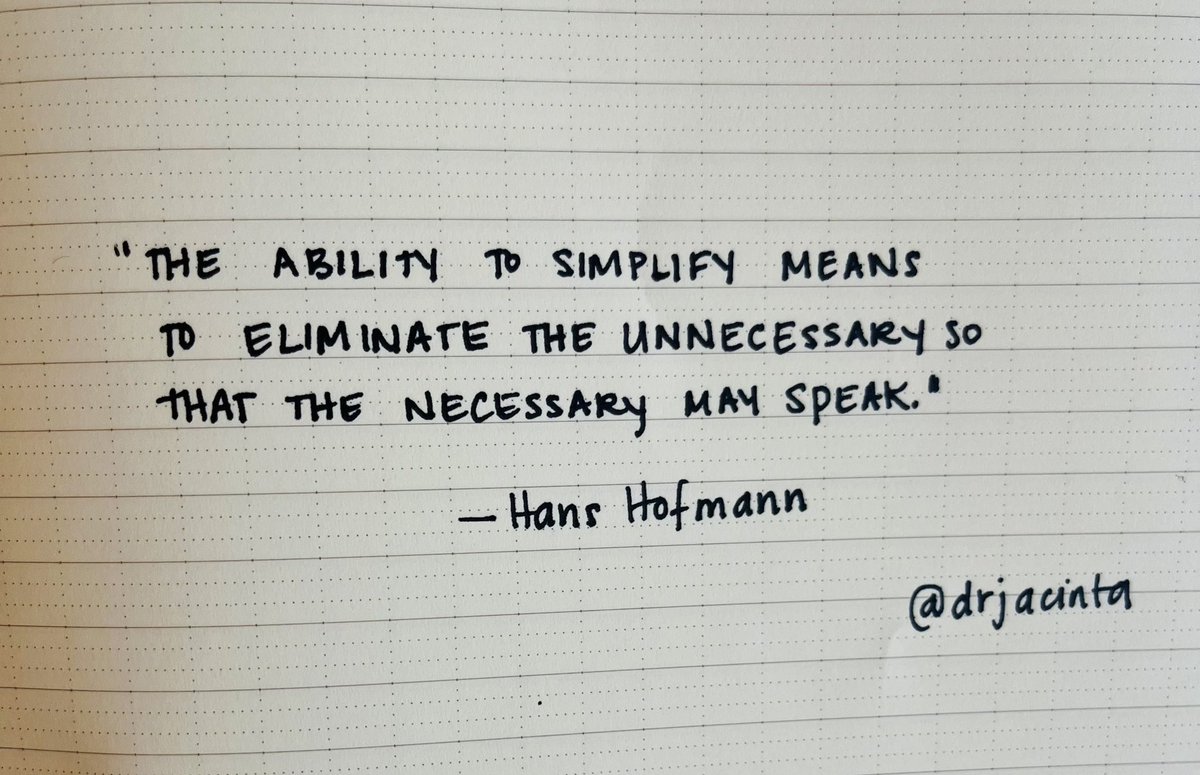 "THE ABILITY TO SIMPLIFY MEANS
TO ELIMINATE THE UNNECESSARY SO
THAT THE NECESSARY MAY SPEAK."
— Hans Hofmann
@drjacinta